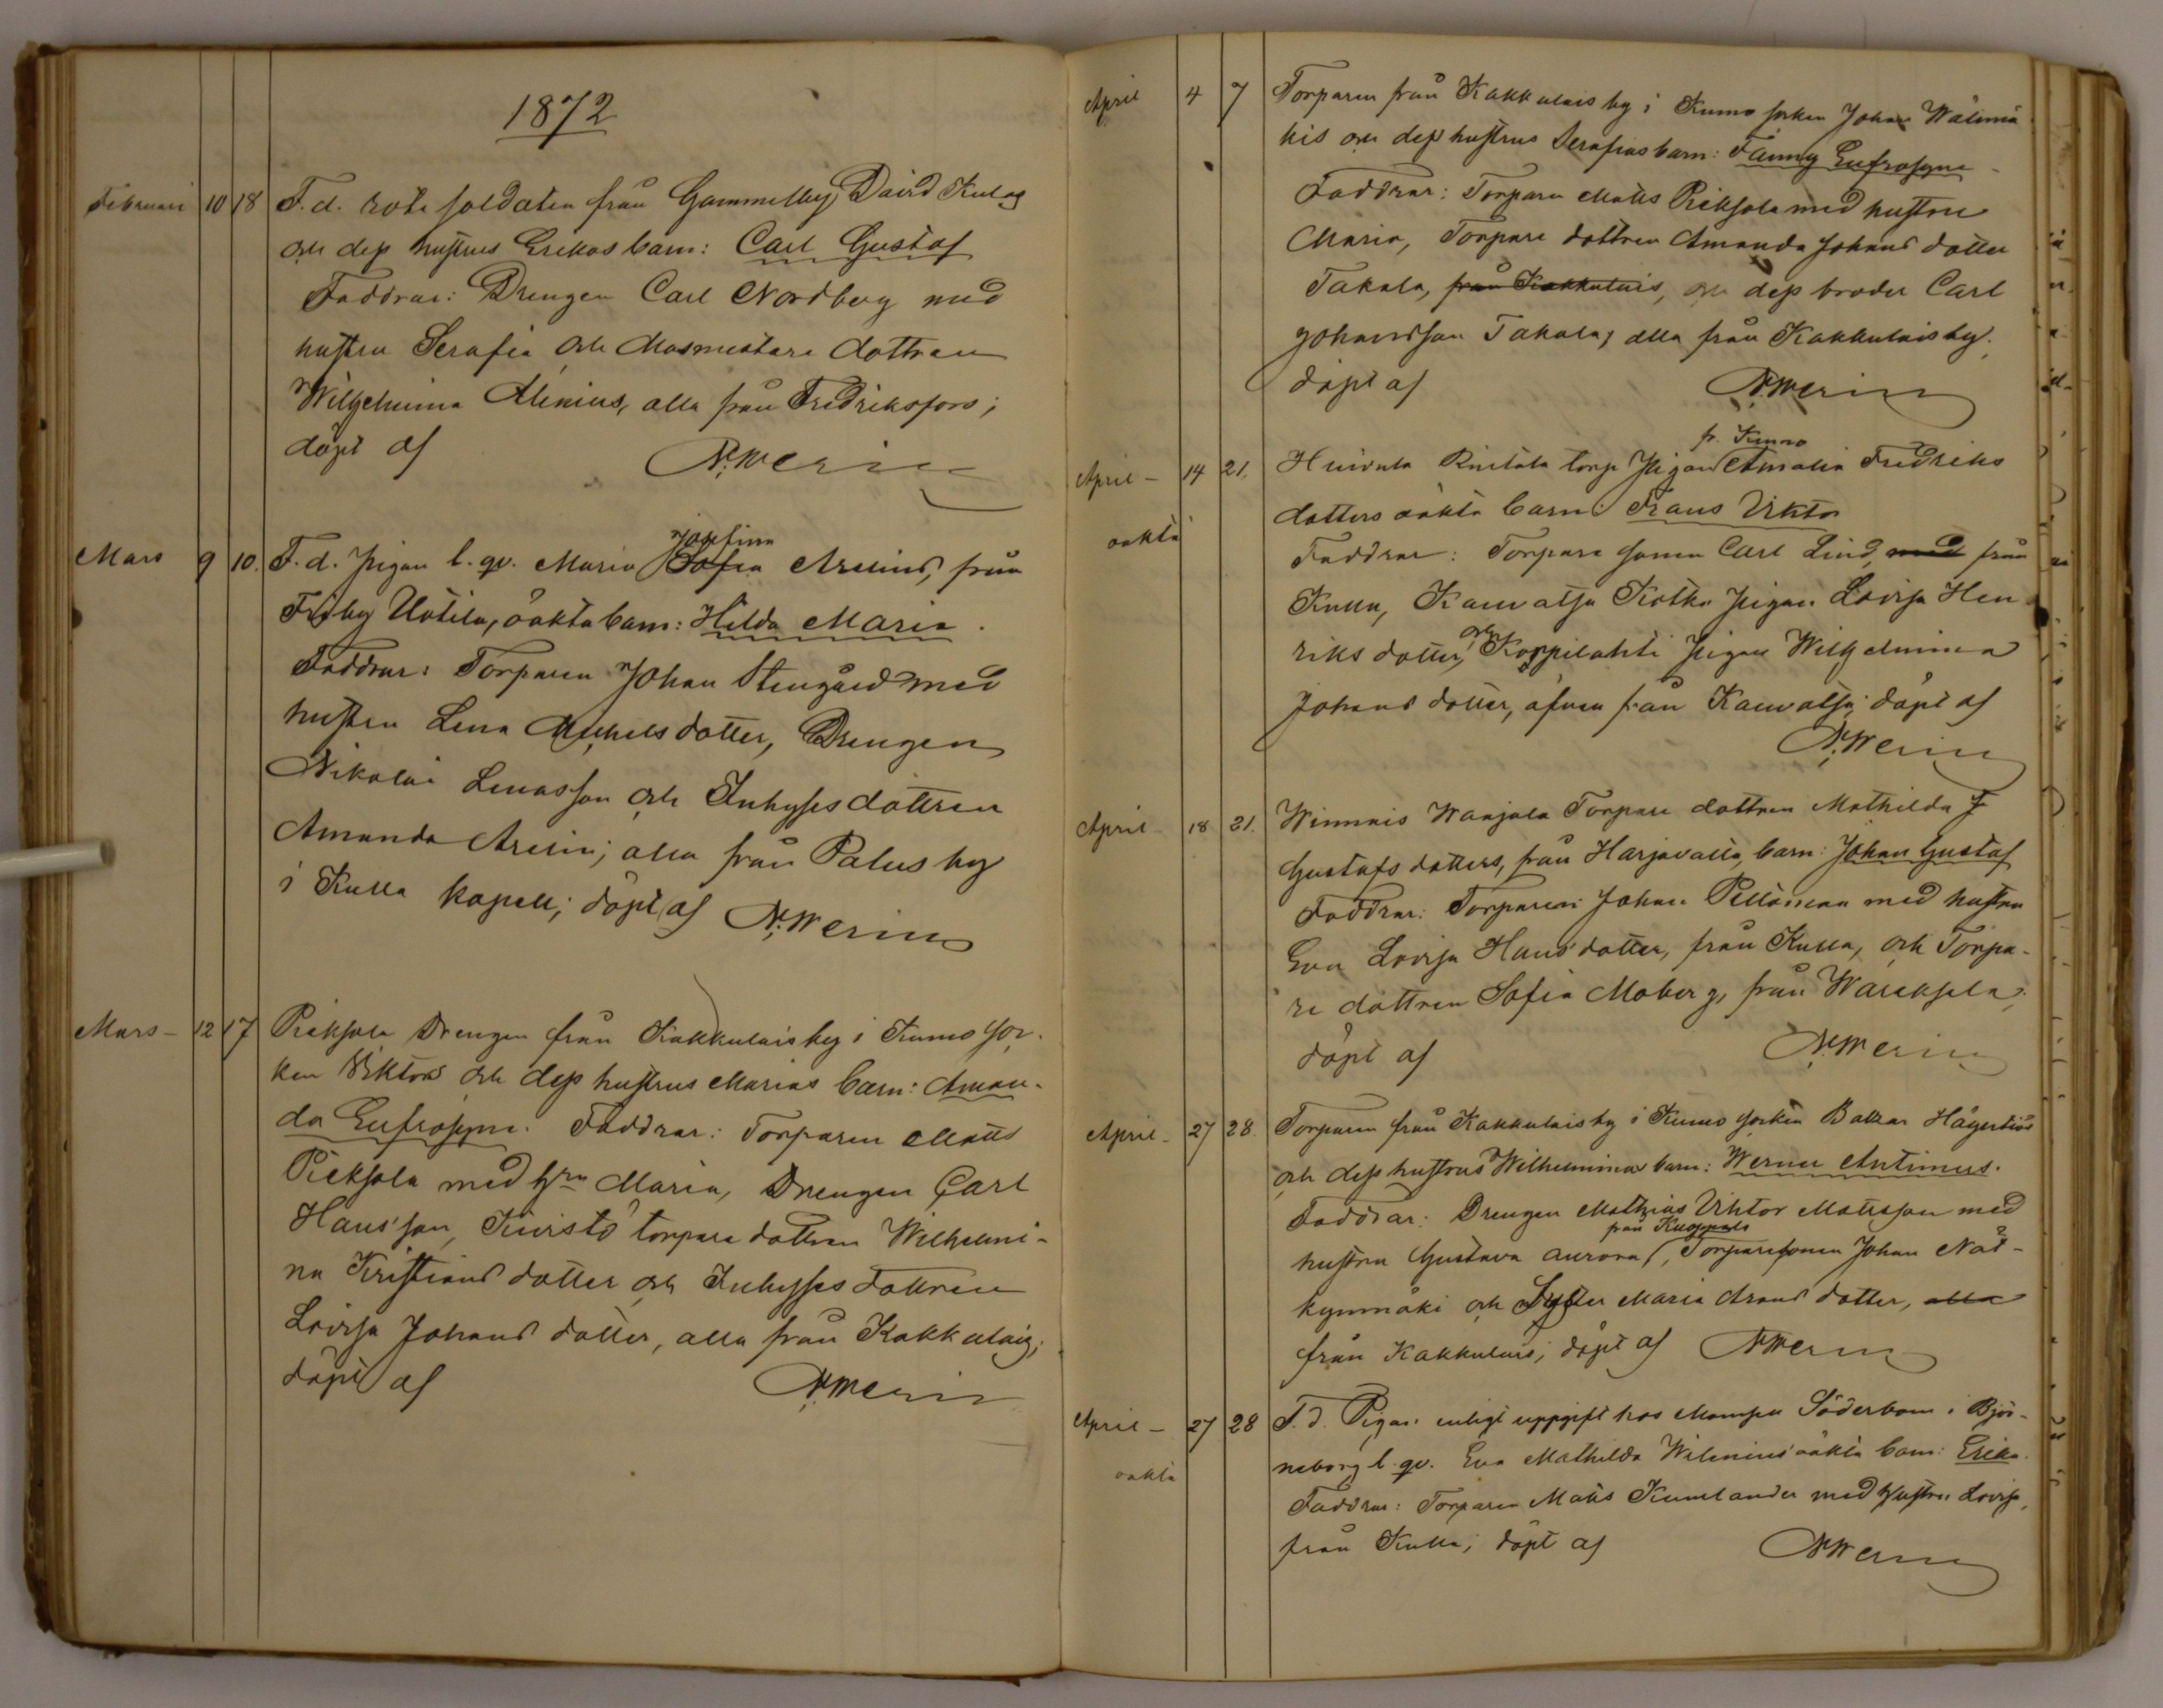 1872
Februari 10 18 F. d. rote soldaten från Gammelby David Kulag
och dess hustrus Erikas barn: Carl Gustaf
Faddrar: Drengen Carl Nordberg med
hustru Serafia och Masmestare dottren
Wilhelmina Alenius, alla från Fredriksfors;
döpt af N. Merin
Mars 9 10. F. d. pigan l. qv. Maria Sofia Josefina Arelius, från
Friby Uotila, oäkta barn: Hilda Maria.
Faddrar: Torparen Johan Stengård med
hustru Lena Michels dotter, Drengen
Nikolai Lenasson och Inhysses dottren
Amanda Arelin; alla från Palus by
i Kulla kapell; döpt af N. Merin
Mars – 12 17 Pieksola Drengen från Kakkulais by i Kumo soc-
ken Viktors och dess hustrus Marias barn: Aman-
da Eufrosyne. Faddrar: Torparen Matts
Pieksola med h:ru Maria, Drengen Carl
Hansson, Kivistö torpare dottren Wilhelmi-
na Kristians dotter och Inhysses dottren
Lovisa Johans dotter, alla från Kakkulais;
döpt af N. Merin
April 4 7 Torparen från Kakkulais by i Kumo socken Johan Wälimä
kis och dess hustrus Serafias barn: Fanny Eufrosyne
Faddrar: Torparen Matts Pieksola med hustru
Maria, Torpare dottren Amanda Johans dotter
Takala, från Kakkulais, och dess broder Carl
Johansson Takala; alla från Kakkulais by.
döpt af N. Merin
fr. Kumo
April – 14 21. Huivula Rintala torp pigan Amalia Fredriks
oäkta dotters oäkta barn: Frans Viktor
Faddrar: Torpare sonen Carl Lind, med från
Kulla, Kauvatsa Kotka pigan Lovisa Hen
riks dotter, och Koppilahti pigan Wilhelmina
Johans dotter, äfven från Kauvatsa; döpt af
N. Merin
April 18 21. Winnais Wanjala Torpare dottren Mathilda
Gustafs dotters, från Harjavalta, barn: Johan Gustaf
Faddrar: Torparen Johan Pellonen med hustru
Eva Lovisa Hans dotter, från Kulla, och Torpa-
re dottren Sofia Moberg, från Wareksela;
döpt af N. Merin
April – 27 28. Torparen från Kakkulais by i Kumo socken Baltzar Hägerties
och dess hustrus Wilhelminas barn: Werner Antimus.
Faddrar: Drengen Mathias Viktor Matsson med
från Kuoppala
hustru Gustava Aurora, Torparesonen Johan Nät-
kynmäki och Syster Maria Arons dotter, alla
från Kakkulais; döpt af N. Merin
April – 27 28 F. d. Pigan enligt uppgift hos Mamsell Söderbom i Björ-
oäkta neborg l. qv. Eva Mathilda Wilenius oäkta barn: Erika.
Faddrar: Torparen Matts Kumlander med hustru Lovisa,
från Kulla; döpt af N. Merin